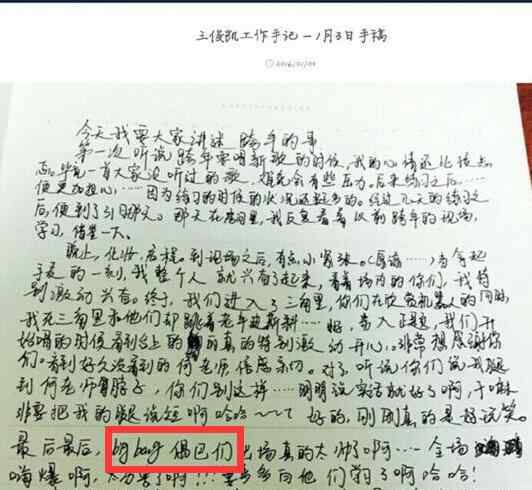 王俊凯工作手记-1月3日手稿
2016/01/04
今天我要大家讲述跨年的事
第一次听说跨年要唱新歌的时候,我的心情还比较忐
忑。毕竟一首大家没听过的歌,难免会有些压力。后来练习之后……
便更加担心……因为练习的时候的状况还挺多的。经过几天的练习之
后,便到了31日那天。那天在房间里,我反复看着以前跨年的现场,
学习,借鉴一下。
晚上,化妆,启程。到现场之后,有点小紧张。(厚……)当举起
手麦的一刻,我整个人就兴奋了起来,看着场内的你们,我特
别激动兴奋。终于,我们进入了三角里,你们在欣赏机器人的同时,
我在三角里和他们都跳着老年迪斯科……好,进入正题,我们开
始唱的时候看到台上的真的特别激动开心。非常想感谢你
们。看到好久没看到的何老师倍感亲切。对了,听说你们说我腿
到何老师胳脖子,你们别这样……明明说实话就好了啊,干嘛
非要把我的腿说短啊哈哈~~~好的,刚刚真的是在说笑。
最后最后,bigbang偶巴们出场真的太帅了啊…全场
嗨爆啊,太厉害了啊!!!要多多向他们学习了啊哈哈!